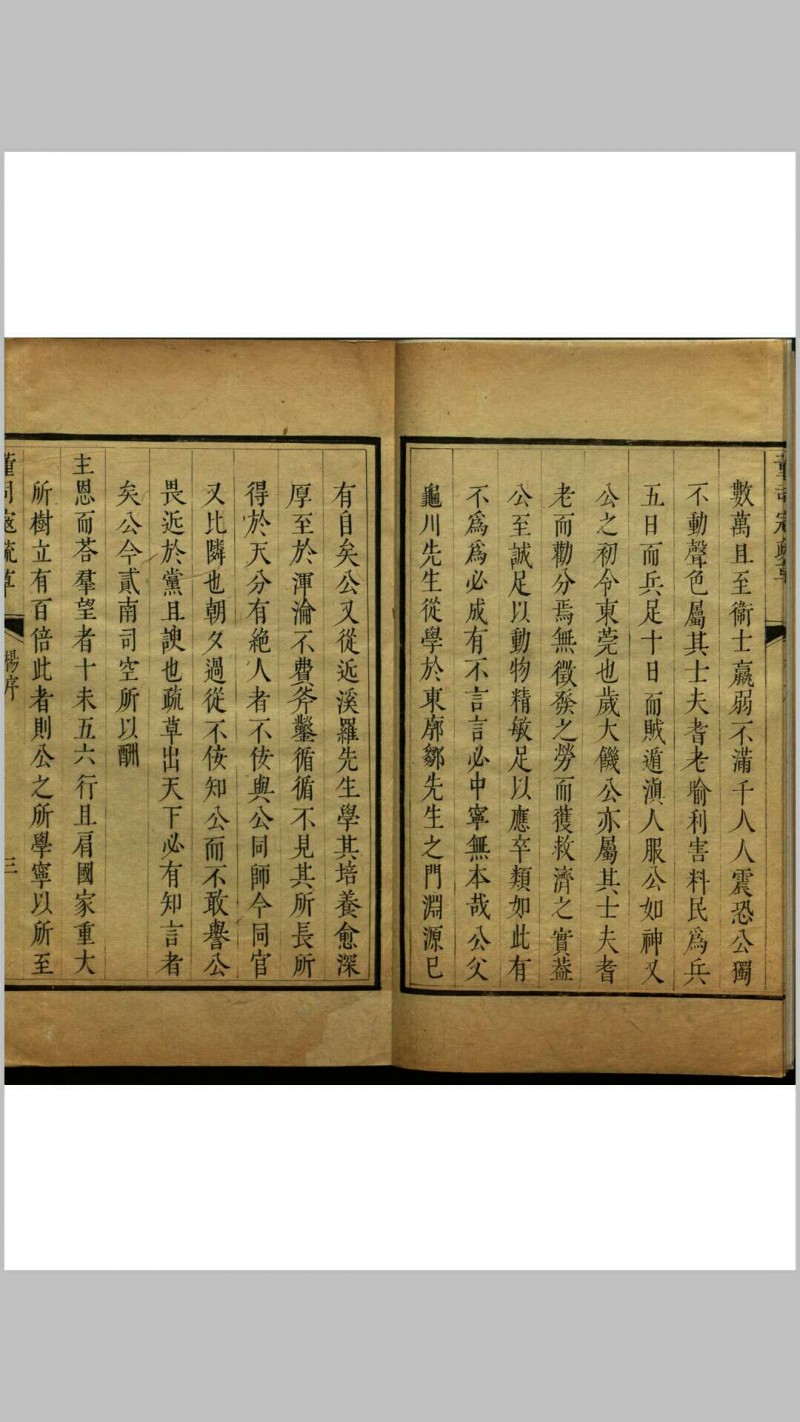 數萬且至衞士羸弱不滿千人人震恐公獨
不動聲色屬其士夫耆老喻利害料民爲兵
五日而兵足十日而賊遁滇人服公如神又
公之初令東莞也歲大饑公亦屬其士夫耆
老而勸分焉無徵發之勞而獲救濟之實葢
公至誠足以動物精敏足以應卒類如此有
不爲爲必成有不言言必中寧無本哉公父
龜川先生從學於東廓鄒先生之門淵源已
有自矣公又從近溪羅先生學其培養愈深
厚至於渾淪不費斧鑿循循不見其所長所
得於天分有絕人者不佞與公同師今同官
又比隣也朝夕過從不佞知公而不敢譽公
畏近於黨且諛也疏草出天下必有知言者
矣公今貳南司空所以酬
主恩而荅羣望者十未五六行且肩國家重大
所樹立有百倍此者則公之所學寧以所至
董司寇疏草
楊序
三